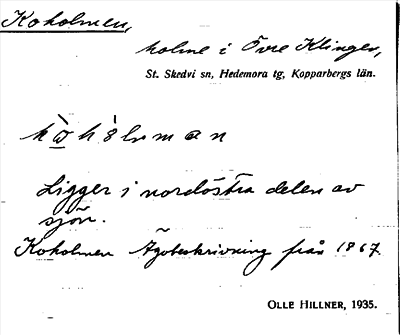 Koholmen,
holme i Övre Klingen,
St. Skedvi sn, Hedemora tg, Kopparbergs län.
Ligger i nordöstra delen av
sjön.
Koholmen Ägobeskrivning från 1867
OLLE HILLNER, 1935.